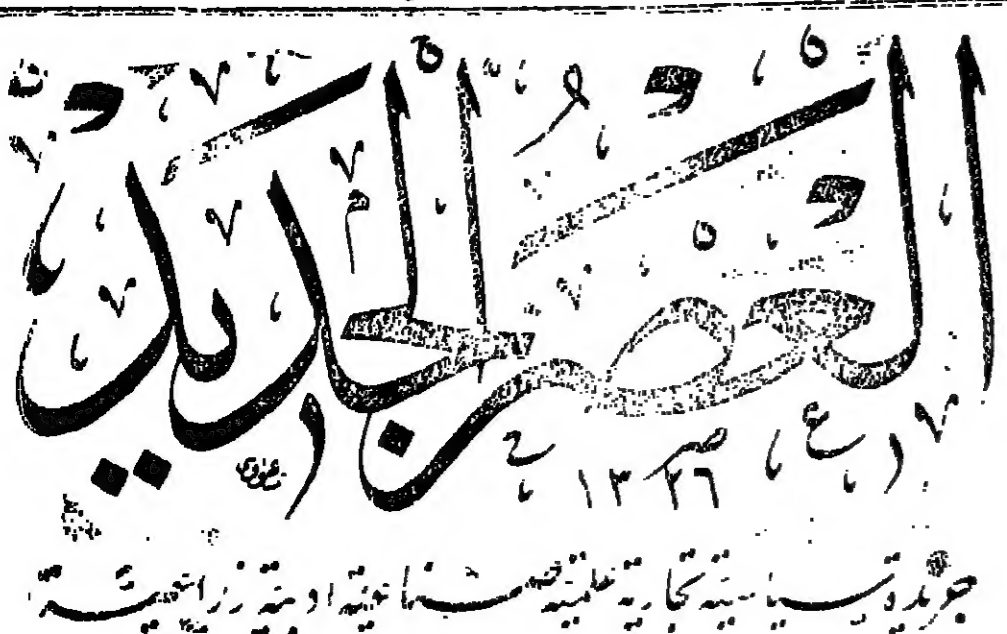 العصر الجديد
١٣٢٦
جريدة سياسية تجارية علمية صناعية ادبية زراعية